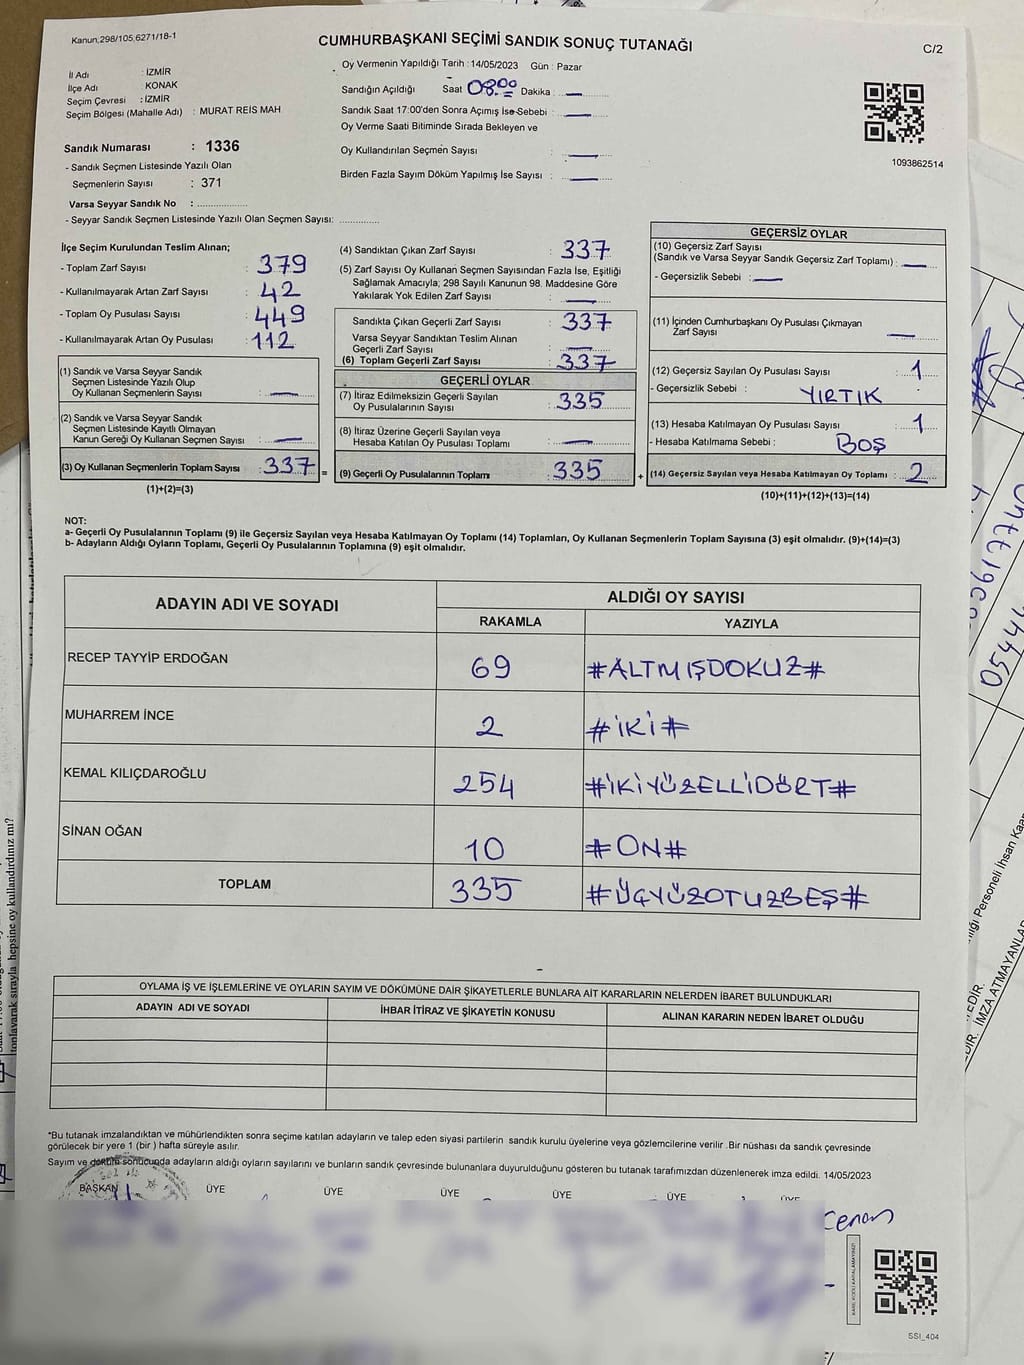 Kanun;298/105,6271/18-1
CUMHURBAŞKANI SEÇİMİ SANDIK SONUÇ TUTANAĞI
C/2
İl Adı : İZMİR
İlçe Adı KONAK
Seçim Çevresi : İZMİR
Seçim Bölgesi (Mahalle Adı) : MURAT REİS MAH
Oy Vermenin Yapıldığı Tarih : 14/05/2023 Gün : Pazar
Sandığın Açıldığı Saat 08.00 Dakika :
Sandık Saat 17:00'den Sonra Açımış İse Sebebi :
Oy Verme Saati Bitiminde Sırada Bekleyen ve
Oy Kullandırılan Seçmen Sayısı :
Birden Fazla Sayım Döküm Yapılmış İse Sayısı :
1093862514
Sandık Numarası : 1336
- Sandık Seçmen Listesinde Yazılı Olan
Seçmenlerin Sayısı : 371
Varsa Seyyar Sandık No :
- Seyyar Sandık Seçmen Listesinde Yazılı Olan Seçmen Sayısı:
İlçe Seçim Kurulundan Teslim Alınan;
- Toplam Zarf Sayısı : 379
- Kullanılmayarak Artan Zarf Sayısı : 42
- Toplam Oy Pusulası Sayısı : 449
- Kullanılmayarak Artan Oy Pusulası : 112
(1) Sandık ve Varsa Seyyar Sandık
Seçmen Listesinde Yazılı Olup
Oy Kullanan Seçmenlerin Sayısı :
(2) Sandık ve Varsa Seyyar Sandık
Seçmen Listesinde Kayıtlı Olmayan
Kanun Gereği Oy Kullanan Seçmen Sayısı :
(3) Oy Kullanan Seçmenlerin Toplam Sayısı : 337 =
(1)+(2)=(3)
(4) Sandıktan Çıkan Zarf Sayısı : 337
(5) Zarf Sayısı Oy Kullanan Seçmen Sayısından Fazla İse, Eşitliği
Sağlamak Amacıyla, 298 Sayılı Kanunun 98. Maddesine Göre
Yakılarak Yok Edilen Zarf Sayısı :
Sandıkta Çıkan Geçerli Zarf Sayısı : 337
Varsa Seyyar Sandıktan Teslim Alınan
Geçerli Zarf Sayısı :
(6) Toplam Geçerli Zarf Sayısı : 337
GEÇERLİ OYLAR
(7) İtiraz Edilmeksizin Geçerli Sayılan
Oy Pusulalarının Sayısı : 335
(8) İtiraz Üzerine Geçerli Sayılan veya
Hesaba Katılan Oy Pusulası Toplamı :
(9) Geçerli Oy Pusulalarının Toplamı : 335 +
GEÇERSİZ OYLAR
(10) Geçersiz Zarf Sayısı
(Sandık ve Varsa Seyyar Sandık Geçersiz Zarf Toplamı) :
- Geçersizlik Sebebi :
(11) İçinden Cumhurbaşkanı Oy Pusulası Çıkmayan
Zarf Sayısı :
(12) Geçersiz Sayılan Oy Pusulası Sayısı : 1
- Geçersizlik Sebebi : YIRTIK
(13) Hesaba Katılmayan Oy Pusulası Sayısı : 1
- Hesaba Katılmama Sebebi : BOŞ
(14) Geçersiz Sayılan veya Hesaba Katılmayan Oy Toplamı : 2
(10)+(11)+(12)+(13)=(14)
NOT:
a- Geçerli Oy Pusulalarının Toplamı (9) ile Geçersiz Sayılan veya Hesaba Katılmayan Oy Toplamı (14) Toplamları, Oy Kullanan Seçmenlerin Toplam Sayısına (3) eşit olmalıdır. (9)+(14)=(3)
b- Adayların Aldığı Oyların Toplamı, Geçerli Oy Pusulalarının Toplamına (9) eşit olmalıdır.
ADAYIN ADI VE SOYADI
ALDIĞI OY SAYISI
RAKAMLA YAZIYLA
RECEP TAYYİP ERDOĞAN 69 #ALTMIŞDOKUZ#
MUHARREM İNCE 2 #İKİ#
KEMAL KILIÇDAROĞLU 254 #İKİYÜZELLİDÖRT#
SİNAN OĞAN 10 #ON#
TOPLAM 335 #ÜÇYÜZOTUZBEŞ#
OYLAMA İŞ VE İŞLEMLERİNE VE OYLARIN SAYIM VE DÖKÜMÜNE DAİR ŞİKAYETLERLE BUNLARA AİT KARARLARIN NELERDEN İBARET BULUNDUKLARI
ADAYIN ADI VE SOYADI İHBAR İTİRAZ VE ŞİKAYETİN KONUSU ALINAN KARARIN NEDEN İBARET OLDUĞU
*Bu tutanak imzalandıktan ve mühürlendikten sonra seçime katılan adayların ve talep eden siyasi partilerin sandık kurulu üyelerine veya gözlemcilerine verilir .Bir nüshası da sandık çevresinde
görülecek bir yere 1 (bir ) hafta süreyle asılır.
Sayım ve döküm sonucunda adayların aldığı oyların sayılarını ve bunların sandık çevresinde bulunanlara duyurulduğunu gösteren bu tutanak tarafımızdan düzenlenerek imza edildi. 14/05/2023
BAŞKAN ÜYE ÜYE ÜYE ÜYE ÜYE ÜYE
SSI_404
toplayarak sırayla hepsine oy kullandırdınız mı?
Personeli İhsan
İMZA ATMAYANLAR